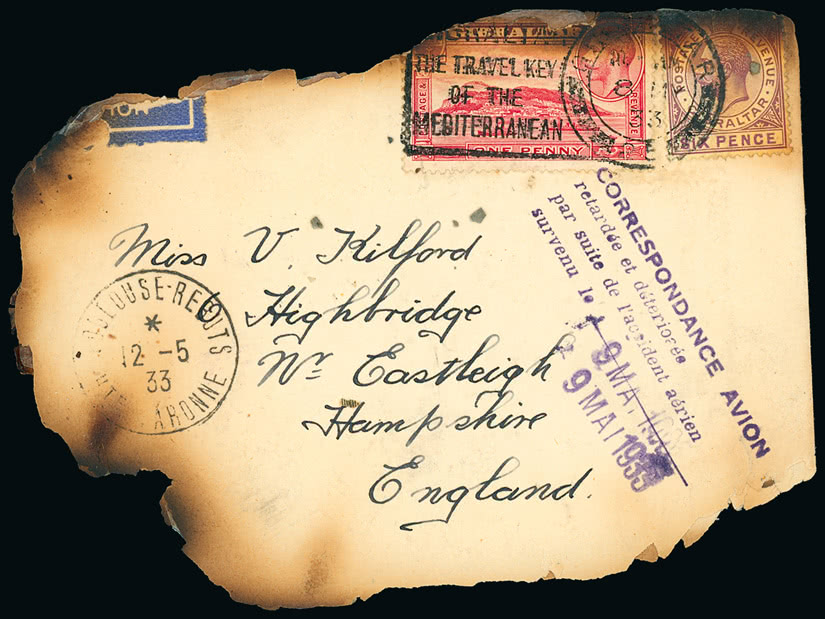 GIBRALTAR
THE TRAVEL KEY
OF THE
MEDITERRANEAN
POSTAGE &
REVENUE
ONE PENNY
33
POSTAGE REVENUE
GIBRALTAR
SIX PENCE
ION
CORRESPONDANCE AVION
retardée et détériorée
par suite de l'accident aérien
survenu le
9 MAI
9 MAI 1933
Miss V. Kilford
Highbridge
Nr Eastleigh
Hampshire
England.
TOULOUSE-REBUTS
*
12 -5
33
HTE GARONNE